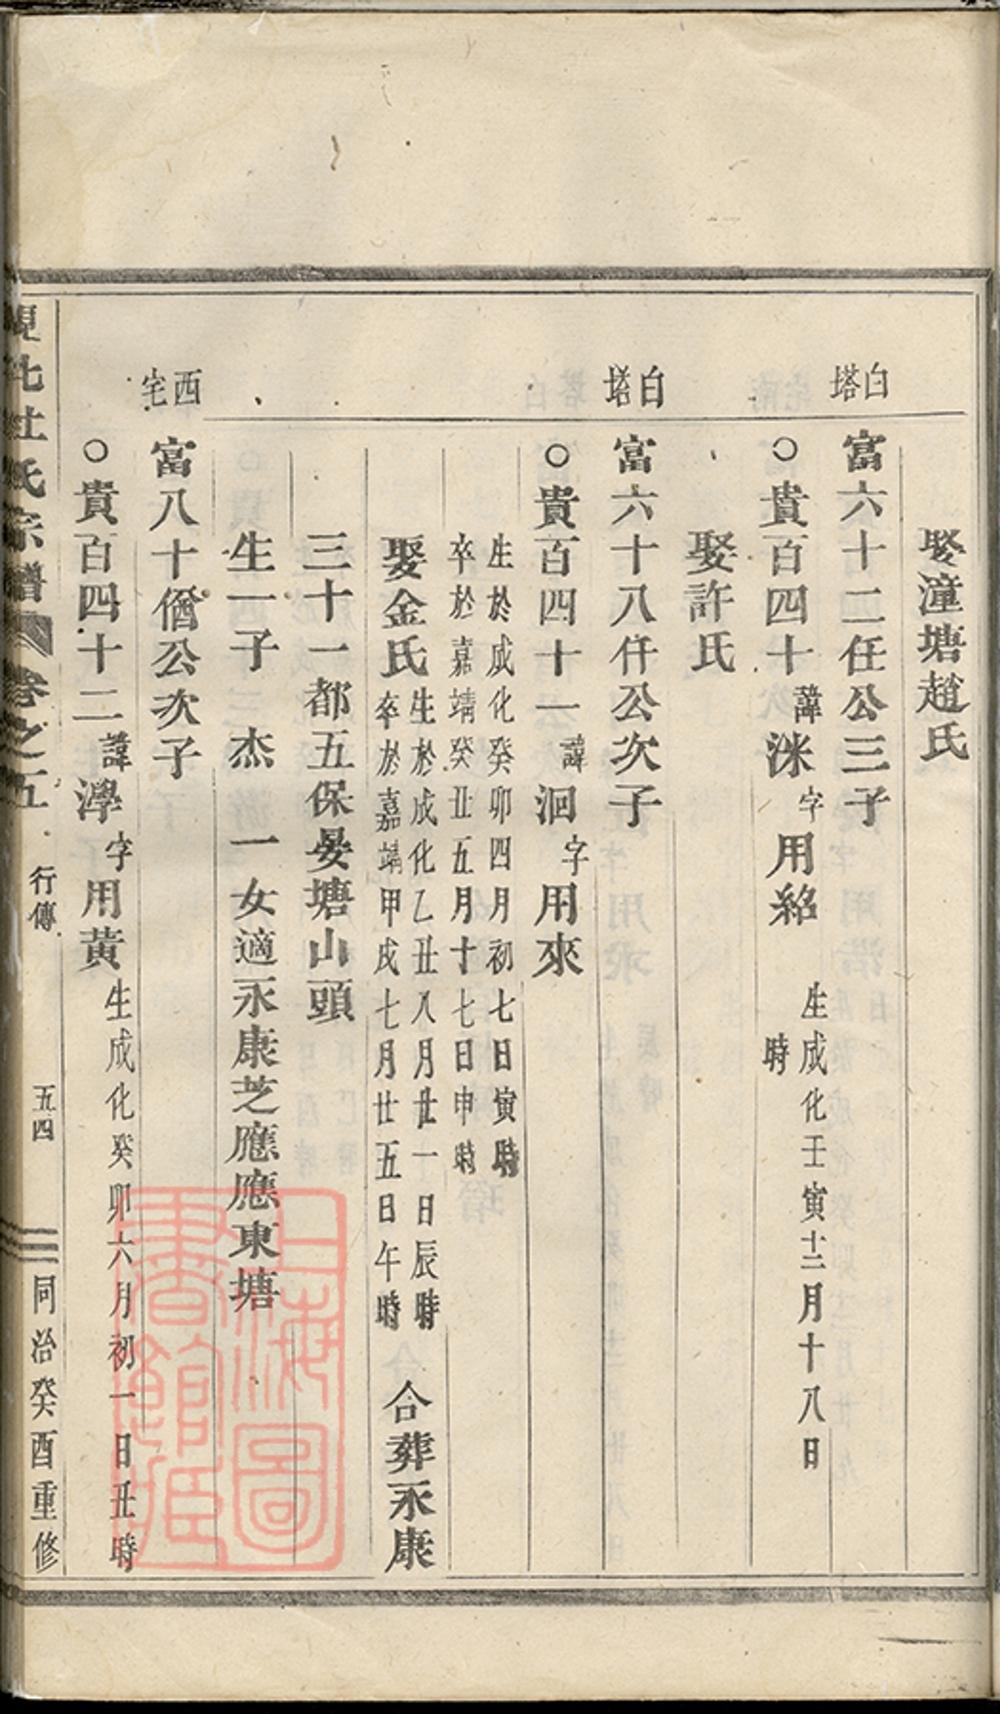 娶潼塘趙氏
白塔
富六十二任公三子
○貴百四十諱洣字用綌 生成化壬寅十二月十八日時
娶許氏
白塔
富六十八仟公次子
○貴百四十一諱洄字用來
生於成化癸卯四月初七日寅時
卒於嘉靖癸丑五月十七日申時
娶金氏 生於成化乙丑八月廿一日辰時 卒於嘉靖甲戌七月廿五日午時 合葬永康
三十一都五保晏塘山頭
生一子 杰 一女適永康芝應應東塘
西宅
富八十僧公次子
○貴百四十二諱澩字用黃 生成化癸卯六月初一日丑時
峴北杜氏宗譜 卷之五 行傳 五四 同治癸酉重修
上海圖書館藏